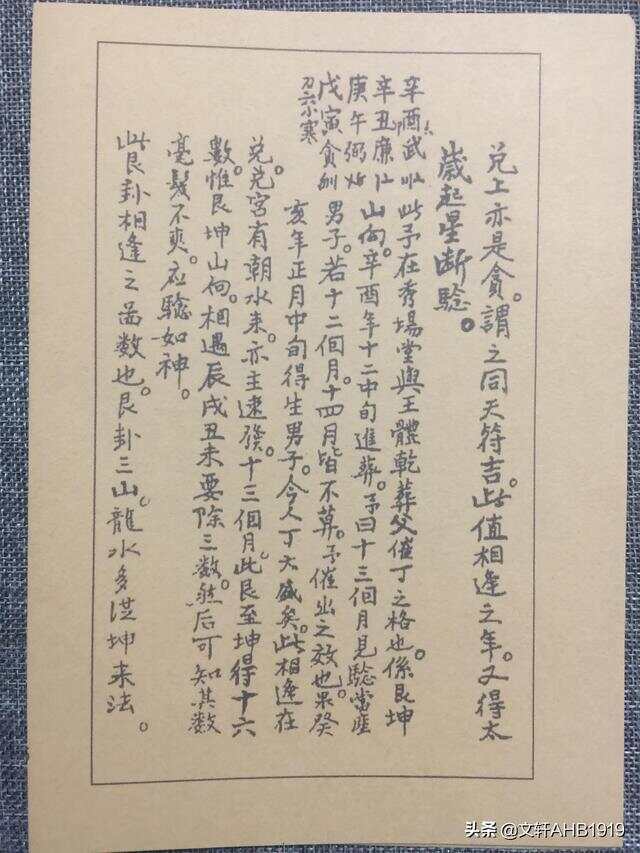 兑上亦是貪。謂之同天符吉。此值相逢之年。又得太
歲起星断驗。
辛酉武 此予在秀場堂與王體乾葬父催丁之格也。係艮坤
辛丑廉 山向。辛酉年十二中旬進葬。予曰十三個月見驗當產
庚午弼 男子。若十二個月。十四月皆不算。予催丁之效也。果癸
戊寅貪 亥年正月中旬得生男子。今人丁大盛矣。此相逢在
刀六小寒
兑。兑宮有朝水来。亦主速發。十三個月。此艮至坤得十六
數。惟艮坤山向。相遇辰戌丑未要除三数。然后可知其数
毫髮不爽。应驗如神。
此艮卦相逢之畐数也。艮卦三山。龍水多從坤来法。
头条 @文轩AHB1919